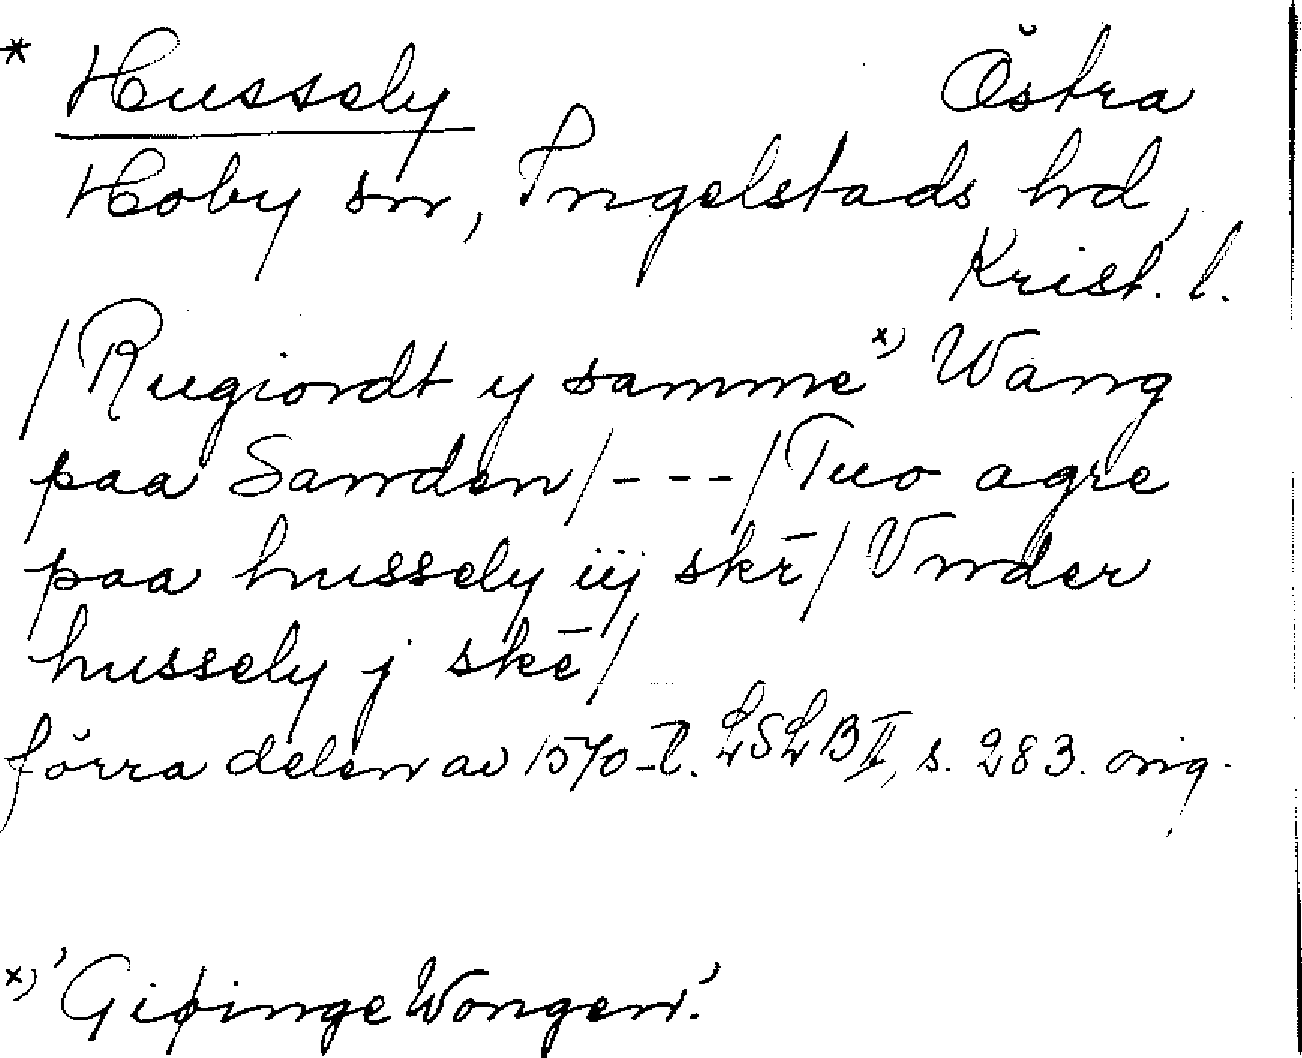 * Hussely Östra
Hoby sn, Ingelstads hd,
Krist. l.
/Rugiordt y samme x) Wang
paa Sanden/---/Tuo agre
paa hussely iij skē/Vnder
hussely j skē/
förra delen av 1570-t. LSLB II, s. 283. orig.
x) 'Gipinge Wongen.'